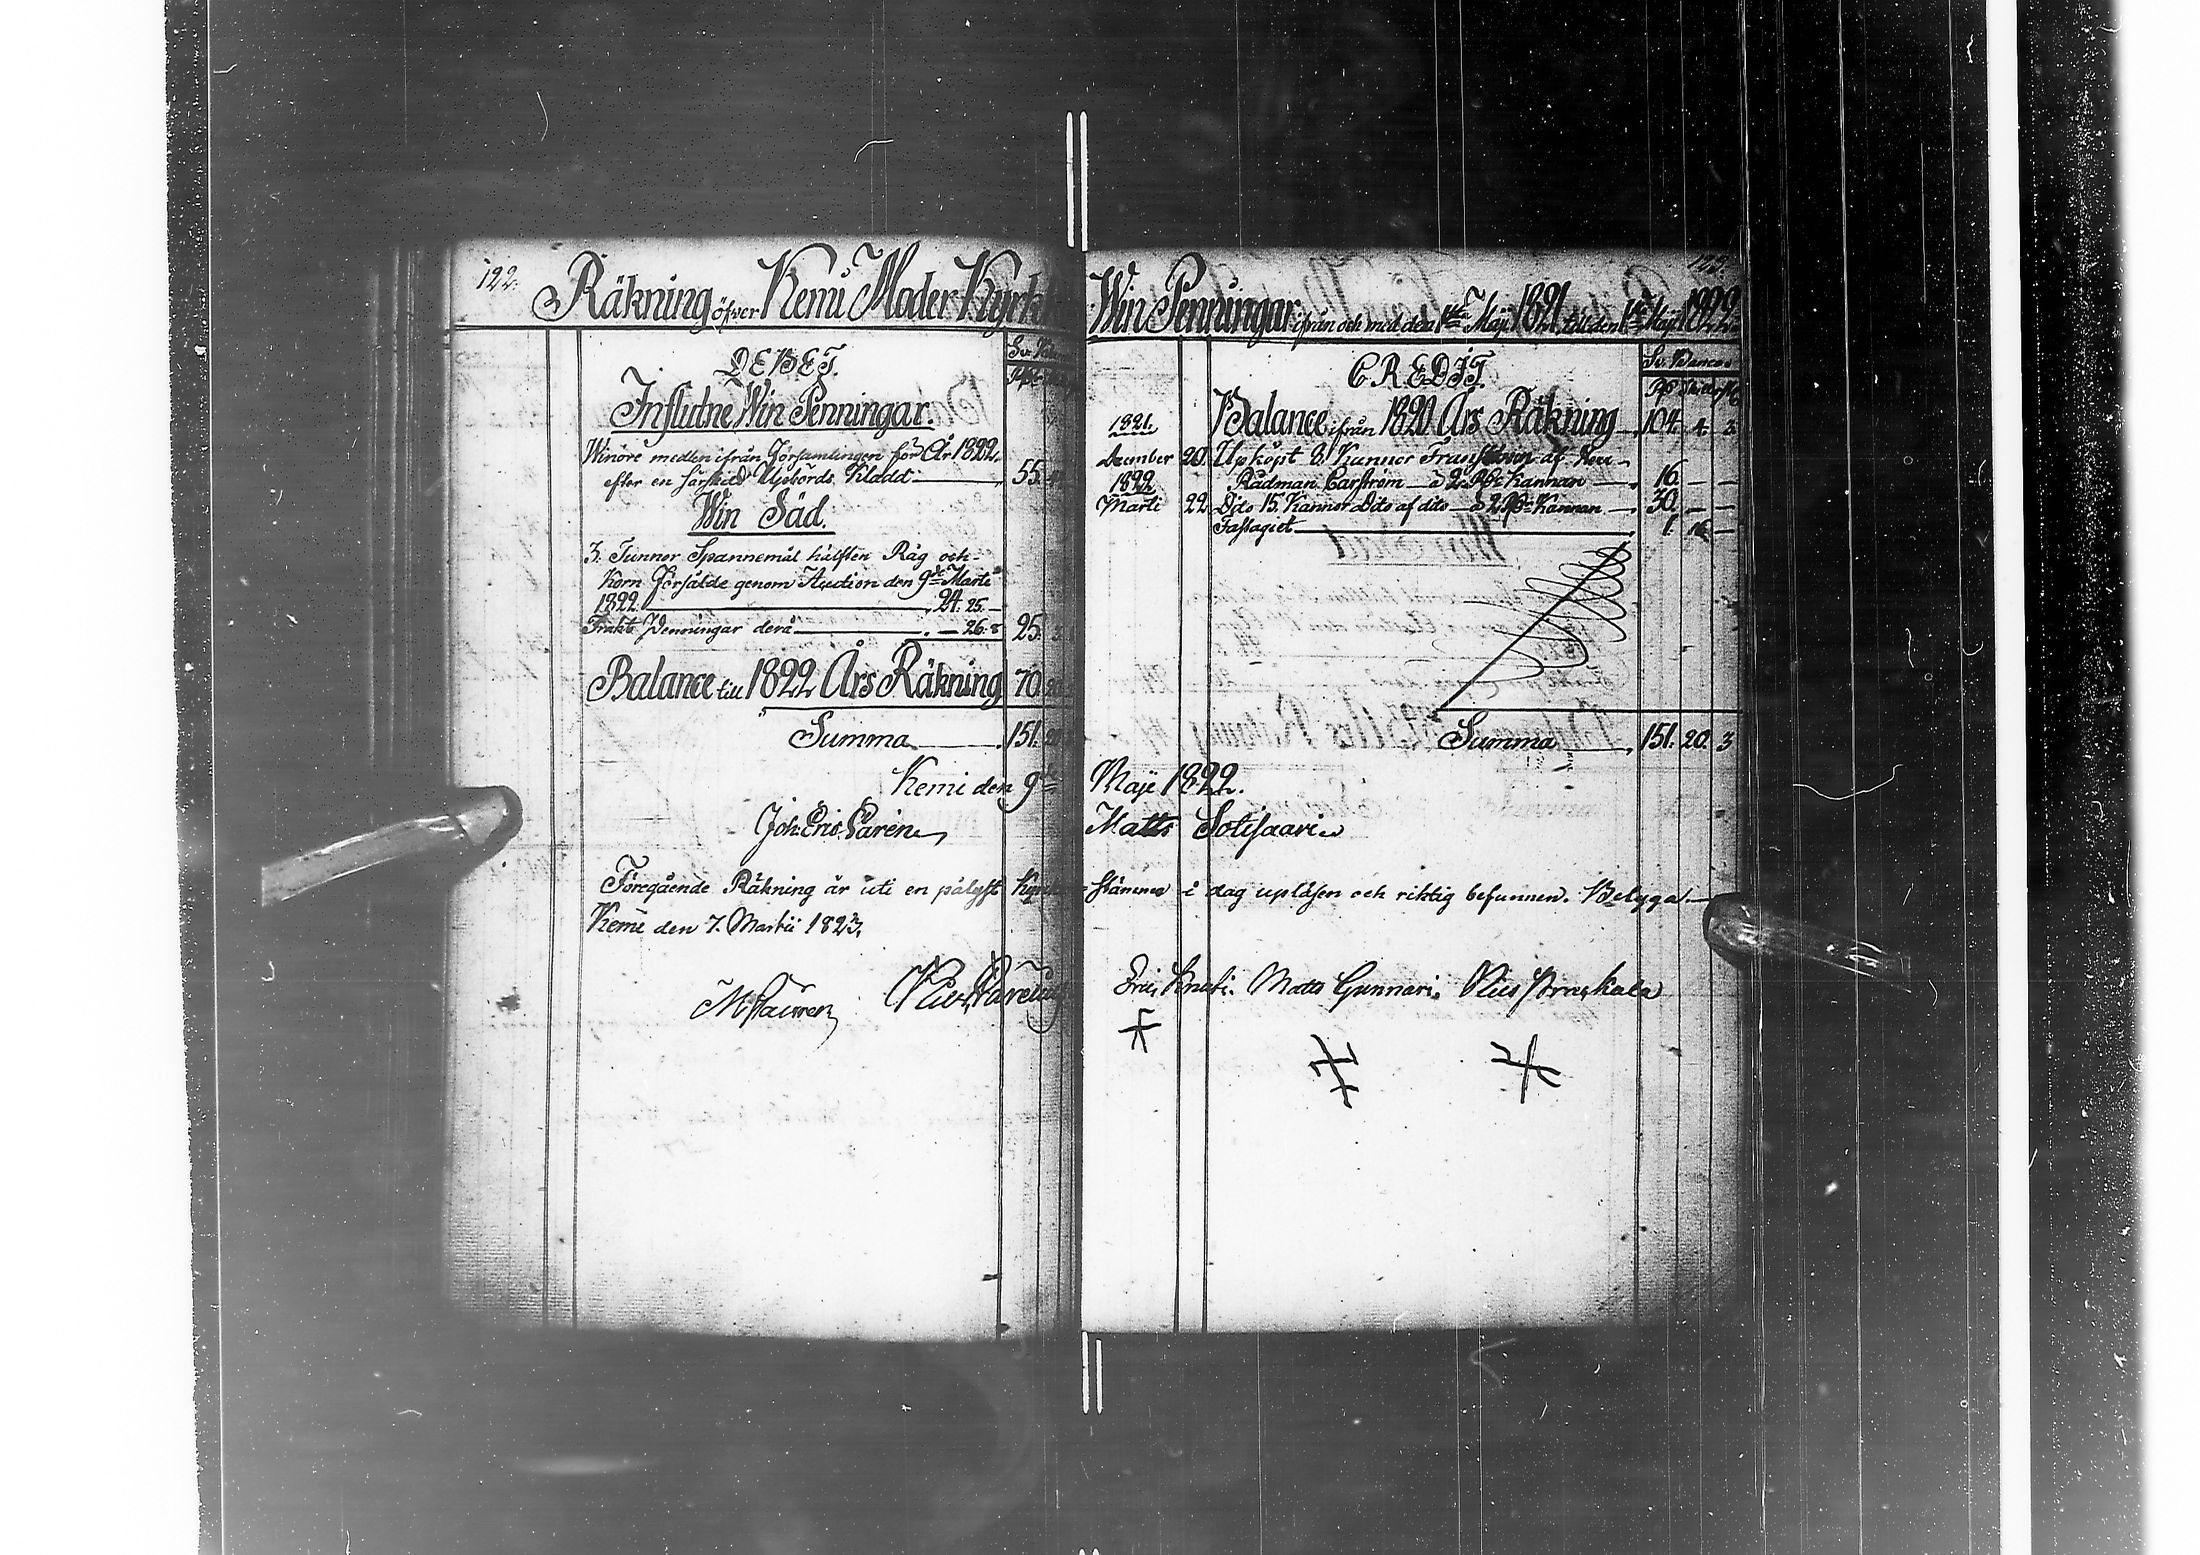 122.
Räkning öfver Kemi Moder Kyrk
DEBET.
Influtne Win Penningar.
Winöre medlen ifrån Församlingen för År 1822,
efter en särskild Upbörds Kladd 55.
Win Säd.
3. Tunnor Spannemål hälften Råg och
Korn Försålde genom Auction den 9de Martii
1822 24. 25. —
Frakt Penningar derå — 26. 8 25.
Balance till 1822 Års Räkning 70.
Summa 151.
Kemi den 9de
Joh. Eric
Föregående Räkning är uti en pålyst Kyrko
Kemi den 7. Martii 1823.
123.
Win Penningar ifrån och med den 1sta Maji 1821 till den 1sta Maji 1822
CREDIT.
Sv. Banco
Balance ifrån 1820 Års Räkning 104. 4. 3
1821.
December 20. Upköpt 8. Kannor af
1822 Rådman Carström à 2 Kannan 16. — —
Martii 22. Dito 15. Kannor Dito af dito à 2 Kannan 30. — —
Fastaget 1. 16 —
Summa 151. 20. 3
Maji 1822.
Matts Sotisaari
stämma i dag uplåsen och riktig befunnen. Betyga.
Eric Matts Gunnari. Pius